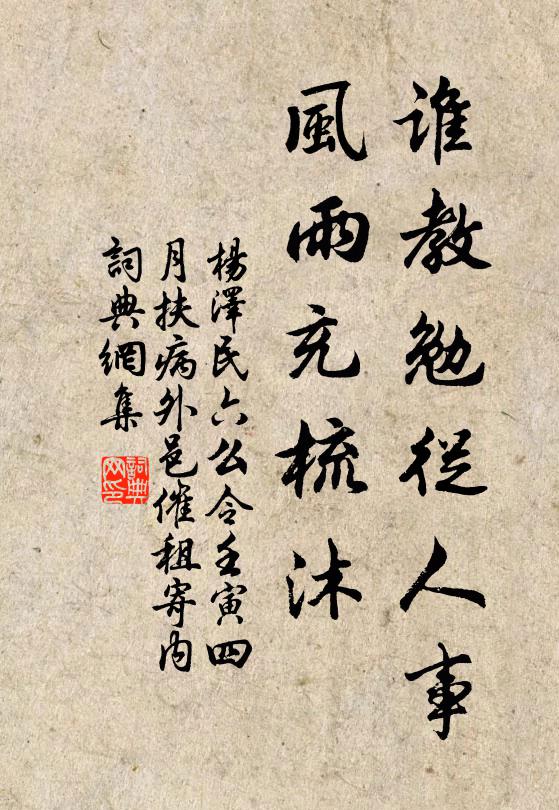 誰教勉從人事
風雨充梳沐
楊澤民六么令壬寅四
月扶病外邑催租寄内
詞典網集
詞典
网印